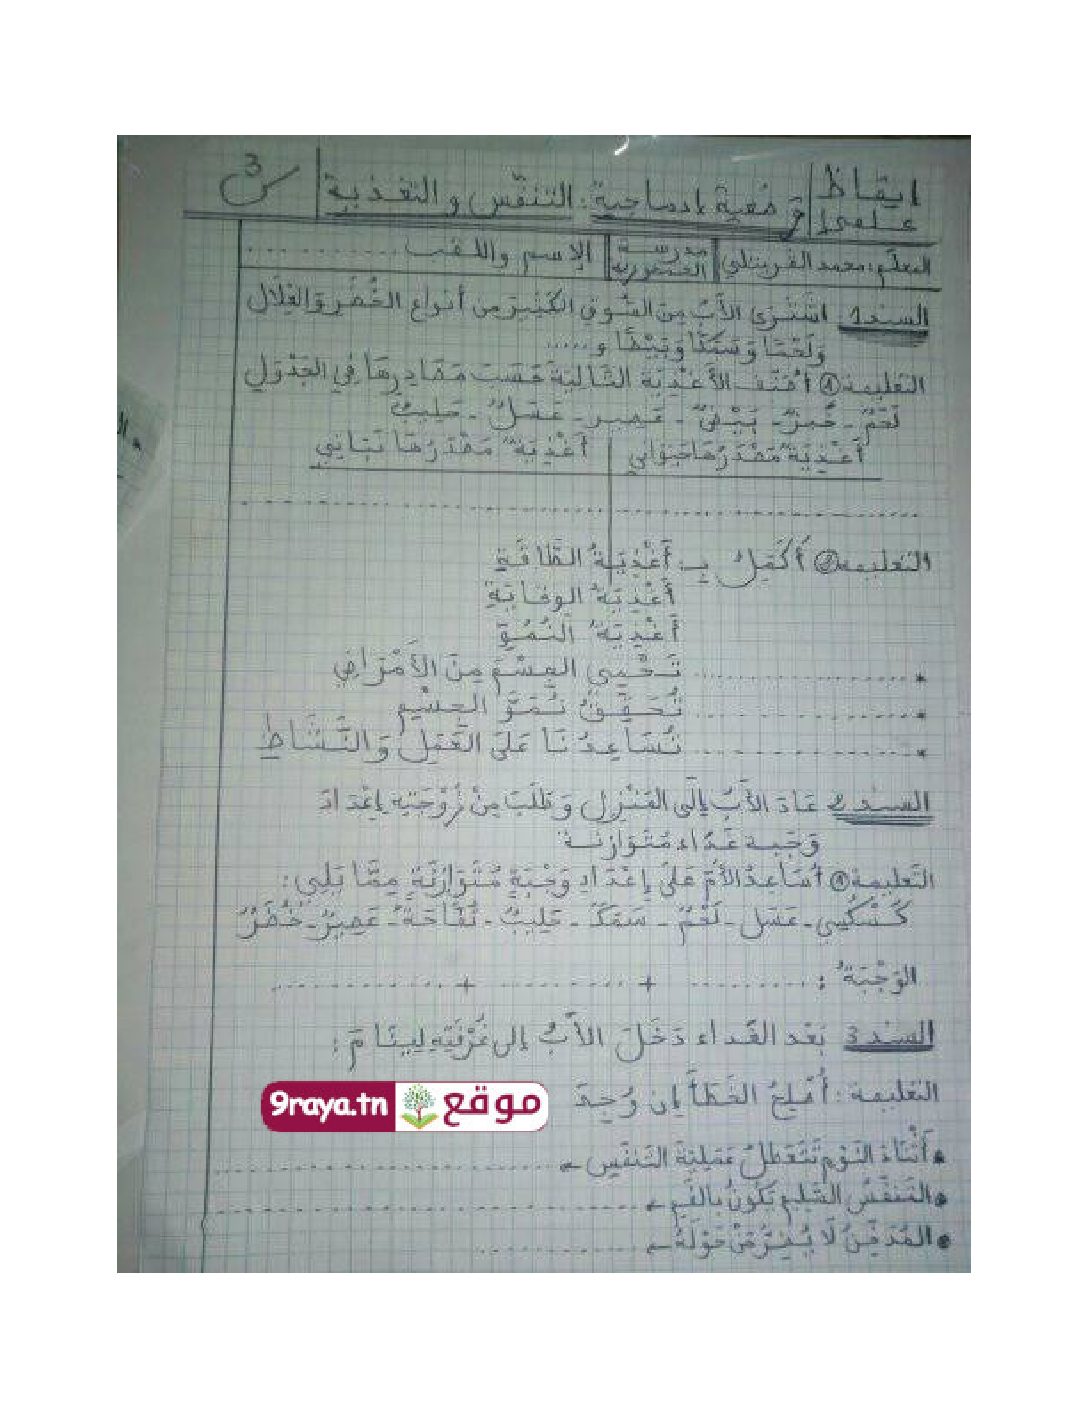 إيقاظ علمي
وضعية إدماجية: التنفّس والتغذية
س 3
المعلّم: محمد الغرينلي
مدرسة الجمهورية
الإسم واللقب ............
السند1 اشْتَرَى الأَبُ مِنَ السُّوقِ الكَثِيرَ مِن أنواع الخُضَرِ وَالغِلَالِ
وَلَحْمًا وَسَمَكًا وَبَيْضًا و.....
التعليمة① أُصَنِّفُ الأَغْذِيَةَ التَّالِيَةَ حَسَبَ مَصَادِرِهَا فِي الجَدْوَلِ
لَحْمٌ - خُبْزٌ - بَيْضٌ - عَصِير - عَسَلٌ - حَلِيبٌ
أَغْذِيَةٌ مَصْدَرُهَا حَيَوَانِي | أَغْذِيَةٌ مَصْدَرُهَا نَبَاتِي
التعليمة② أُكَمِّلُ بِـ: أَغْذِيَةُ الطَّاقَةِ
أَغْذِيَةُ الوِقَايَةِ
أَغْذِيَةُ النُّمُوِّ
* .................. تَحْمِي الجِسْمَ مِنَ الأَمْرَاضِ
* .................. تُحَقِّقُ نُمُوَّ الجِسْمِ
* .................. تُسَاعِدُنَا عَلَى العَمَلِ وَالنَّشَاطِ
السند2 عَادَ الأَبُ إِلَى المَنْزِلِ وَطَلَبَ مِنْ زَوْجَتِهِ إِعْدَادَ
وَجْبَة غَدَاء مُتَوَازِنَة
التعليمة① أُسَاعِدُ الأُمَّ عَلَى إِعْدَادِ وَجْبَةٍ مُتَوَازِنَةٍ مِمَّا يَلِي:
كُسْكُسِي - عَسَل - لَحْمٌ - سَمَكٌ - حَلِيبٌ - تُفَّاحَةٌ - عَصِيرٌ - خُضَرٌ
الوَجْبَةُ: ............ + ............ + ............
السند3 بَعْدَ الغَدَاء دَخَلَ الأَبُ إلى غُرْفَتِهِ لِيَنَامَ:
التعليمة: أُصْلِحُ الخَطَأَ إِن وُجِدَ
موقع 9raya.tn
• أَثْنَاءَ النَّوْمِ تَتَعَطَّلُ عَمَلِيَّةُ التَّنَفُّسِ ← ..................
• التَّنَفُّسُ السَّلِيمُ يَكُونُ بِالفَمِ ← ..................
• المُدَخِّنُ لَا يُضِرُّ مَنْ حَوْلَهُ ← ..................